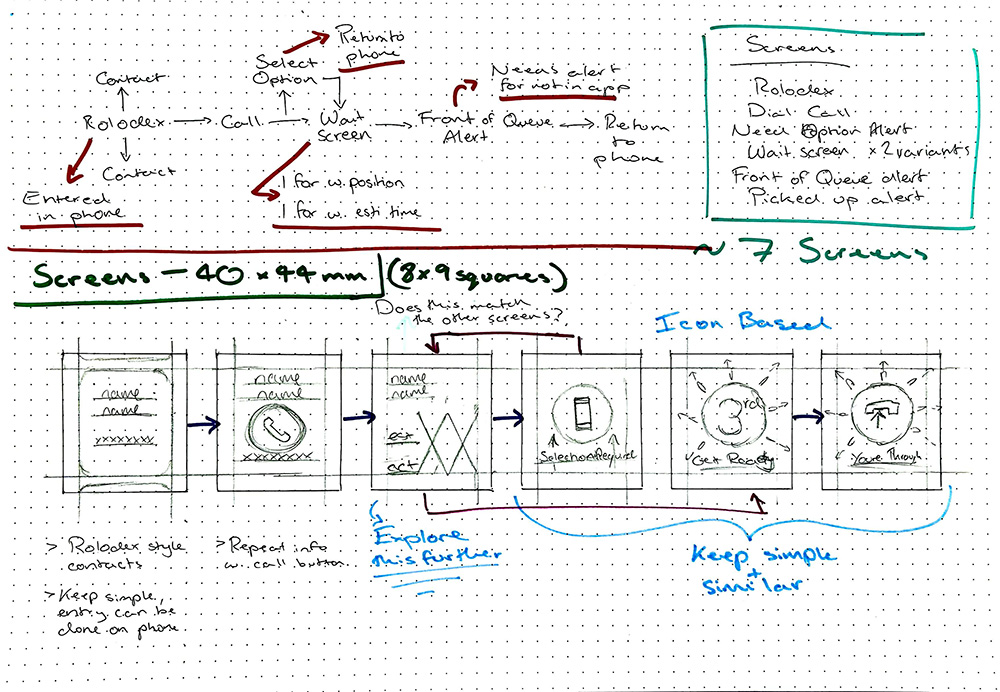 Return to
phone
Select
Option
Needs alert
for not in app
Contact
Rolodex
Call
Wait
screen
Front of Queue
Alert
Return
to
phone
Contact
Entered
in phone
1 for w. position
1 for w. esti time
Screens
Rolodex
Dial Call
Need Option Alert
Wait screen x2 variants
Front of Queue alert
Picked up alert
~ 7 Screens
Screens - 40 x 44mm (8x9 squares)
Does this match
the other screens?
Icon Based
name
name
xxxxxxxx
name
name
xxxxxxxx
name
name
est
act
Selection Required
3rd
Get Ready
Youre Through
> Rolodex style
contacts
> Keep simple,
entry can be
done on phone
> Repeat info
w. call button
Explore
this further
Keep simple
+
similar